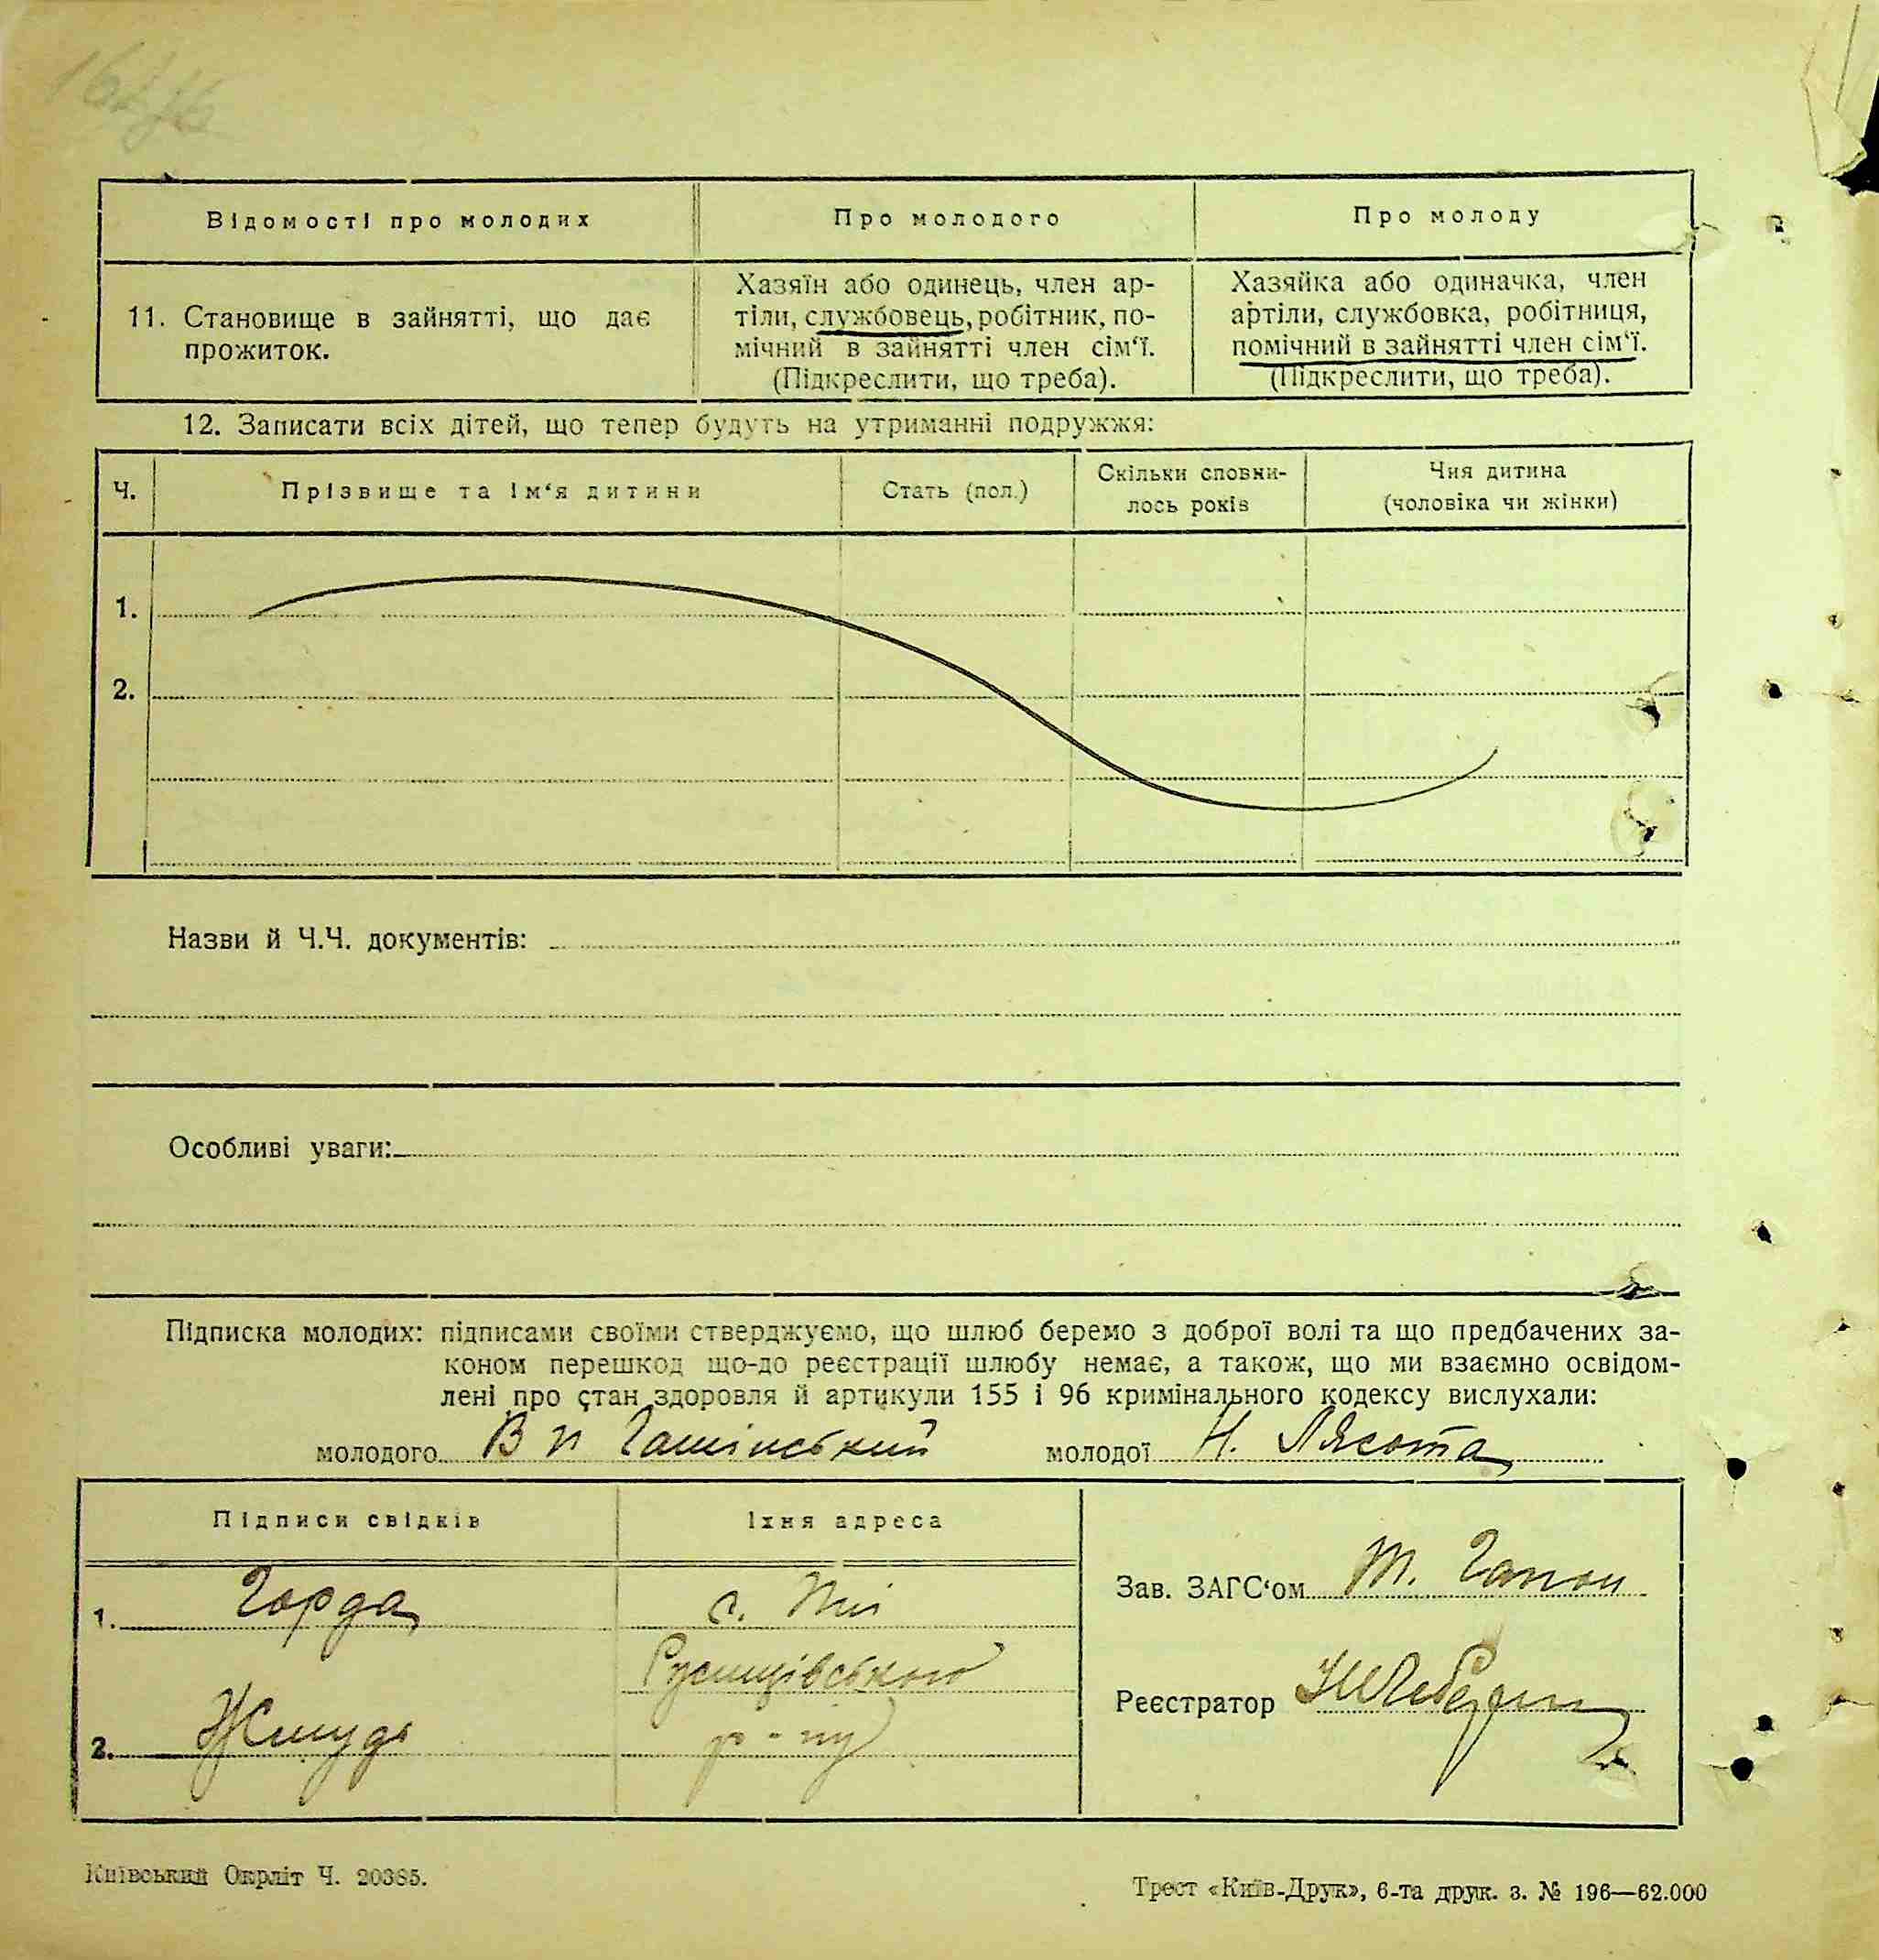 Відомості про молодих
Про молодого
Про молоду
11. Становище в зайнятті, що дає
прожиток.
Хазяїн або одинець, член ар-
тіли, службовець, робітник, по-
мічний в зайнятті член сім‘ї.
(Підкреслити, що треба).
Хазяйка або одиначка, член
артіли, службовка, робітниця,
помічний в зайнятті член сім‘ї.
(Підкреслити, що треба).
12. Записати всіх дітей, що тепер будуть на утриманні подружжя:
Ч.
Прізвище та ім‘я дитини
Стать (пол.)
Скільки сповни-
лось років
Чия дитина
(чоловіка чи жінки)
1.
2.
Назви й Ч.Ч. документів:
Особливі уваги:
Підписка молодих: підписами своїми стверджуємо, що шлюб беремо з доброї волі та що предбачених за-
коном перешкод що-до реєстрації шлюбу немає, а також, що ми взаємно освідом-
лені про стан здоровля й артикули 155 і 96 кримінального кодексу вислухали:
молодого В П Гашінський молодої Н. Лясота
Підписи свідків
Їхня адреса
1. Горда
с.
2. Жмудь
р-ну
Зав. ЗАГС‘ом Т. Гапон
Реєстратор
Київський Окрліт Ч. 20385.
Трест «Київ-Друк», 6-та друк. з. № 196—62.000